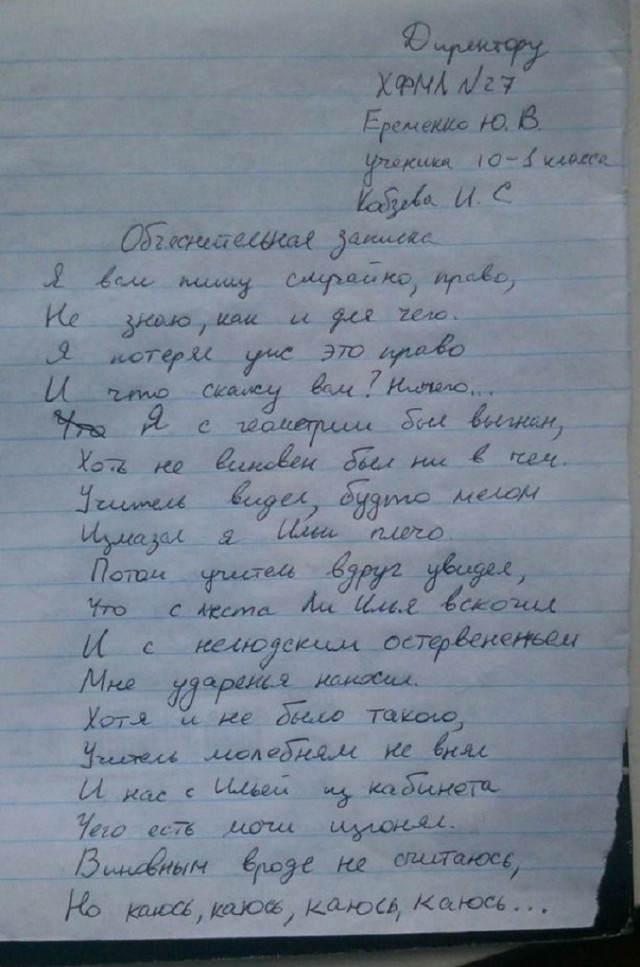 Директору
ХФМЛ №27
Еременко Ю. В.
ученика 10-1 класса
Кобзева И. С
Объяснительная записка
Я вам пишу случайно, право,
Не знаю, как и для чего.
Я потерял уже это право
И что скажу вам? Ничего...
Что Я с геометрии был выгнан,
Хоть не виновен был ни в чем.
Учитель видел, будто мелом
Измазал я Ильи плечо.
Потом учитель вдруг увидел,
Что с места Ли Илья вскочил
И с нелюдским остервененьем
Мне ударенья наносил.
Хотя и не было такого,
Учитель молебням не внял
И нас с Ильей из кабинета
Чего есть мочи изгонял.
Виновным вроде не считаюсь,
Но каюсь, каюсь, каюсь, каюсь...